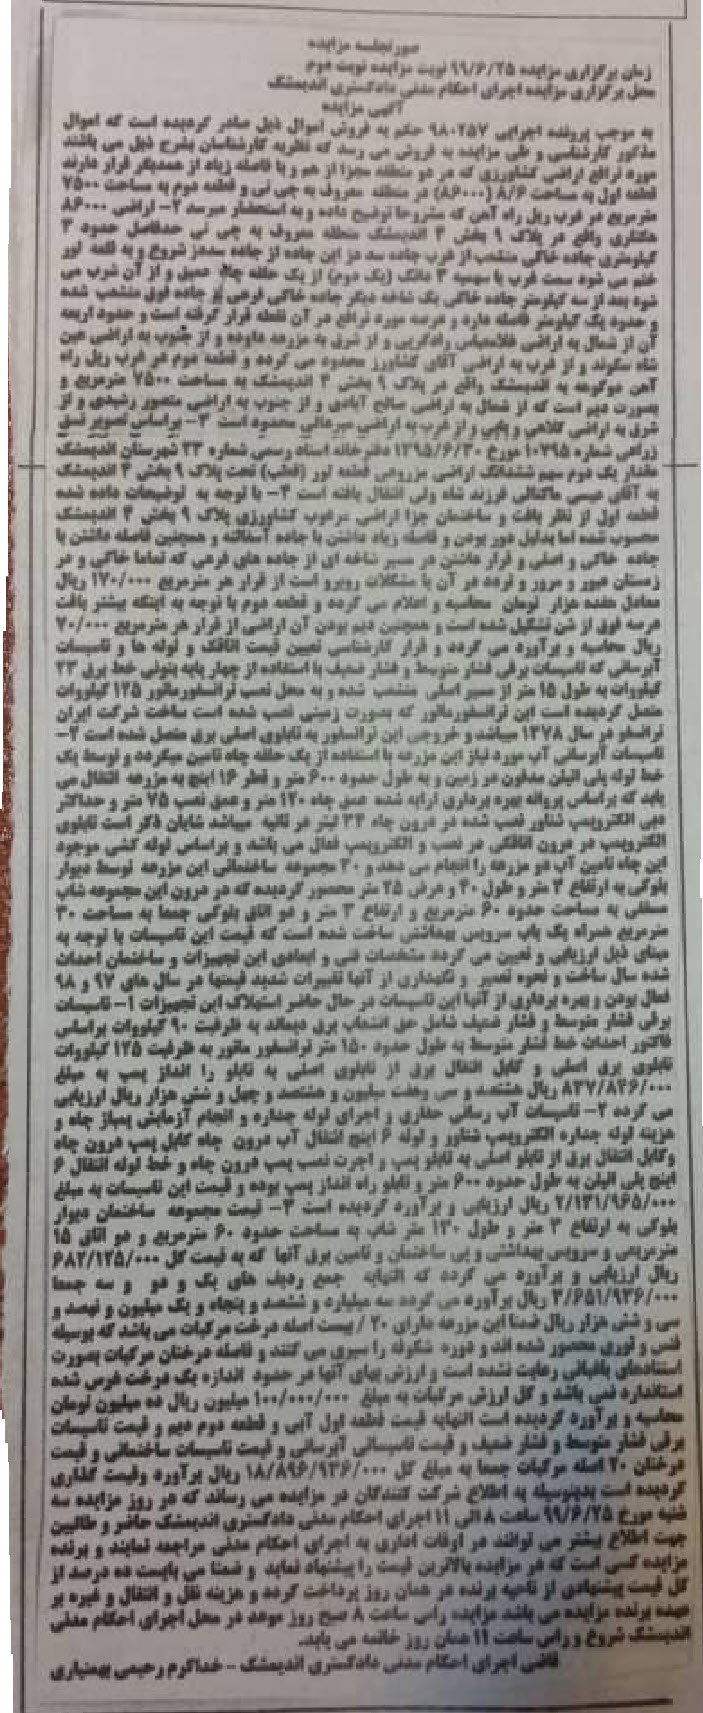 صورتجلسه مزایده
زمان برگزاری مزایده ۹۹/۶/۲۵ نوبت مزایده نوبت دوم
محل برگزاری مزایده اجرای احکام مدنی دادگستری اندیمشک
آگهی مزایده
به موجب پرونده اجرایی ۹۸۰۲۵۷ حکم به فروش اموال ذیل صادر گردیده است که اموال
مذکور کارشناسی و طی مزایده به فروش می رسد که نظریه کارشناسان بشرح ذیل می باشند
مورد ترافع اراضی کشاورزی که در دو منطقه مجزا از هم و با فاصله زیاد از همدیگر قرار دارند
قطعه اول به مساحت ۸/۶ (۸۶۰۰۰) در منطقه معروف به چی نی و قطعه دوم به مساحت ۷۵۰۰
مترمربع در غرب ریل راه آهن که مشروحا توضیح داده و به استحضار میرسد ۲- اراضی ۸۶۰۰۰
هکتاری واقع در پلاک ۹ بخش ۴ اندیمشک منطقه معروف به چی نی حدفاصل حدود ۳
کیلومتری جاده خاکی منشعب از غرب جاده سد دز این جاده از جاده سددز شروع و به قلعه لور
ختم می شود سمت غرب با سهمیه ۳ دانگ (یک دوم) از یک حلقه چاه عمیق و از آن شرب می
شود بعد از سه کیلومتر جاده خاکی یک شاخه دیگر جاده خاکی فرعی بر جاده فوق منشعب شده
و حدود یک کیلومتر فاصله دارد و عرصه مورد ترافع در آن نقطه قرار گرفته است و حدود اربعه
آن از شمال به اراضی غلامعباس رادکریی و از شرق به مزرعه داوده و از جنوب به اراضی عین
شاه سکوند و از غرب به اراضی آقای کشاورز محدود می گردد و قطعه دوم در غرب ریل راه
آهن دوکوهه به اندیمشک واقع در پلاک ۹ بخش ۴ اندیمشک به مساحت ۷۵۰۰ مترمربع و
بصورت دیم است که از شمال به اراضی صالح آبادی و از جنوب به اراضی منصور رشیدی و از
شرق به اراضی کلاهی و پاپی و از غرب به اراضی میرعالی محدود است ۳- براساس تصویر نسق
زراعی شماره ۱۰۳۹۵ مورخ ۱۳۹۵/۶/۳۰ دفترخانه اسناد رسمی شماره ۳۳ شهرستان اندیمشک
مقدار یک دوم سهم ششدانگ اراضی مزروعی قطعه لور (قطب) تحت پلاک ۹ بخش ۴ اندیمشک
به آقای عیسی ماکنالی فرزند شاه ولی انتقال یافته است ۴- با توجه به توضیحات داده شده
قطعه اول از نظر بافت و ساختمان جزا اراضی مرغوب کشاورزی پلاک ۹ بخش ۴ اندیمشک
محسوب شده اما بدلیل دور بودن و فاصله زیاد داشتن با جاده آسفالته و همچنین فاصله داشتن با
جاده خاکی و اصلی و قرار داشتن در مسیر شاخه ای از جاده های فرعی که تماما خاکی و در
زمستان عبور و مرور و تردد در آن با مشکلات روبرو است از قرار هر مترمربع ۱۷۰/۰۰۰ ریال
معادل هفده هزار تومان محاسبه و اعلام می گردد و قطعه دوم با توجه به اینکه بیشتر بافت
عرصه فوق از شن تشکیل شده است و همچنین دیم بودن آن اراضی از قرار هر مترمربع ۷۰/۰۰۰
ریال محاسبه و برآورد می گردد و قرار کارشناسی تعیین قیمت اتاقک و لوله ها و تاسیسات
آبرسانی که تاسیسات برقی فشار متوسط و فشار ضعیف با استفاده از چهار پایه بتونی خط برق ۳۳
کیلووات به طول ۱۵ متر از مسیر اصلی منشعب شده و به محل نصب ترانسفورماتور ۱۲۵ کیلووات
متصل گردیده است این ترانسفورماتور که بصورت زمینی نصب شده است ساخت شرکت ایران
ترانسفو در سال ۱۳۷۸ میباشد و خروجی این ترانسفلور به تابلوی اصلی برق متصل شده است ۲-
تاسیسات آبرسانی آب مورد نیاز این مزرعه با استفاده از یک حلقه چاه تامین میگردد و توسط یک
خط لوله پلی اتیلن مدفون در زمین و به طول حدود ۶۰۰ متر و قطر ۱۶ اینچ به مزرعه انتقال می
یابد که براساس پروانه بهره برداری ارایه شده عمق چاه ۱۲۰ متر و عمق نصب ۷۵ متر و حداکثر
دبی الکتروپمپ شناور نصب شده در درون چاه ۳۴ لیتر در ثانیه میباشد شایان ذکر است تابلوی
الکتروپمپ در درون اتاقکی در نصب و الکتروپمپ فعال می باشد و براساس لوله کشی موجود
این چاه تامین آب دو مزرعه را انجام می دهد و ۳۰ مجموعه ساختمانی این مزرعه توسط دیوار
بلوکی به ارتفاع ۳ متر و طول ۴۰ و عرض ۲۵ متر محصور گردیده که در درون این مجموعه شاپ
مسقفی به مساحت حدود ۶۰ مترمربع و ارتفاع ۳ متر و دو اتاق بلوکی جمعا به مساحت ۳۰
مترمربع همراه یک باب سرویس بهداشتی ساخت شده است که قیمت این تاسیسات با توجه به
مبنای ذیل ارزیابی و تعیین می گردد مشخصات فنی و ابعادی این تجهیزات و ساختمان احداث
شده سال ساخت و نحوه تعمیر و نگهداری از آنها تغییرات شدید قیمتها در سال های ۹۷ و ۹۸
فعال بودن و بهره برداری از آنها این تاسیسات در حال حاضر استهلاک این تجهیزات ۱- تاسیسات
برقی فشار متوسط و فشار ضعیف شامل حق انشعاب برق دیماند به ظرفیت ۹۰ کیلووات براساس
فاکتور احداث خط فشار متوسط به طول حدود ۱۵۰ متر ترانسفور ماتور به ظرفیت ۱۲۵ کیلووات
تابلوی برق اصلی و کابل انتقال برق از تابلوی اصلی به تابلو را انداز پمپ به مبلغ
۸۳۷/۸۴۶/۰۰۰ ریال هشتصد و سی وهفت میلیون و هشتصد و چهل و شش هزار ریال ارزیابی
می گردد ۲- تاسیسات آب رسانی حفاری و اجرای لوله جداره و انجام آزمایش پمپاژ چاه و
هزینه لوله جداره الکتروپمپ شناور و لوله ۶ اینچ انتقال آب درون چاه کابل پمپ درون چاه
وکابل انتقال برق از تابلو اصلی به تابلو پمپ و اجرت نصب پمپ درون چاه و خط لوله انتقال ۶
اینچ پلی اتیلن به طول حدود ۶۰۰ متر و تابلو راه انداز پمپ بوده و قیمت این تاسیسات به مبلغ
۲/۱۳۱/۹۶۵/۰۰۰ ریال ارزیابی و برآورد گردیده است ۳- قیمت مجموعه ساختمان دیوار
بلوکی به ارتفاع ۳ متر و طول ۱۳۰ متر شاپ به مساحت حدود ۶۰ مترمربع و دو اتاق ۱۵
مترمربعی و سرویس بهداشتی و پی ساختمان و تامین برق آنها که به قیمت کل ۶۸۲/۱۲۵/۰۰۰
ریال ارزیابی و برآورد می گردد که النهایه جمع ردیف های یک و دو و سه جمعا
۳/۶۵۱/۹۳۶/۰۰۰ ریال برآورد می گردد سه میلیارد و ششصد و پنجاه و یک میلیون و نهصد و
سی و شش هزار ریال ضمنا این مزرعه دارای ۲۰ / بیست اصله درخت مرکبات می باشد که بوسیله
فنس و توری محصور شده اند و دوره شکوفه را سپری می کنند و فاصله درختان مرکبات بصورت
استنادهای باغبانی رعایت نشده است و ارزش بهای آنها در حدود اندازه یک درخت غرس شده
استاندارد نمی باشد و کل ارزش مرکبات به مبلغ ۱۰۰/۰۰۰/۰۰۰ میلیون ریال ده میلیون تومان
محاسبه و برآورد گردیده است النهایه قیمت قطعه اول آبی و قطعه دوم دیم و قیمت تاسیسات
برقی فشار متوسط و فشار ضعیف و قیمت تاسیساتی آبرسانی و قیمت تاسیسات ساختمانی و قیمت
درختان ۲۰ اصله مرکبات جمعا به مبلغ کل ۱۸/۸۹۶/۹۳۶/۰۰۰ ریال برآورد وقیمت گذاری
گردیده است بدینوسیله به اطلاع شرکت کنندگان در مزایده می رساند که در روز مزایده سه
شنبه مورخ ۹۹/۶/۲۵ ساعت ۸ الی ۱۱ اجرای احکام مدنی دادگستری اندیمشک حاضر و طالبین
جهت اطلاع بیشتر می توانند در اوقات اداری به اجرای احکام مدنی مراجعه نمایند و برنده
مزایده کسی است که در مزایده بالاترین قیمت را پیشنهاد نماید و ضمنا می بایست ده درصد از
کل قیمت پیشنهادی از ناحیه برنده در همان روز پرداخت گردد و هزینه نقل و انتقال و غیره بر
عهده برنده مزایده می باشد مزایده راس ساعت ۸ صبح روز موعد در محل اجرای احکام مدنی
اندیمشک شروع و راس ساعت ۱۱ همان روز خاتمه می یابد.
قاضی اجرای احکام مدنی دادگستری اندیمشک - خداکرم رحیمی بهمنیاری